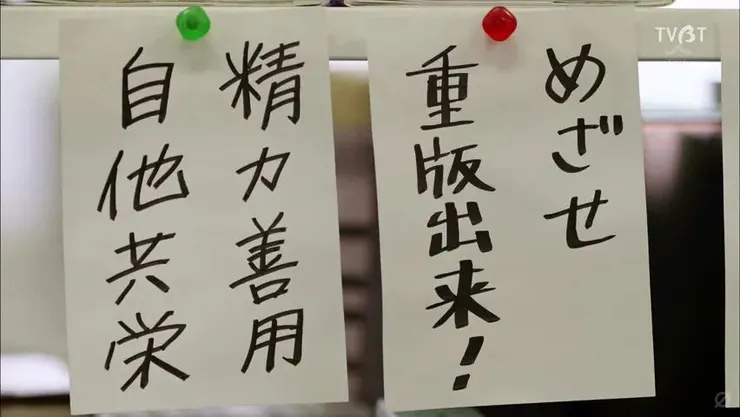 めざせ
重版出来！
精力善用
自他共栄
TVBT